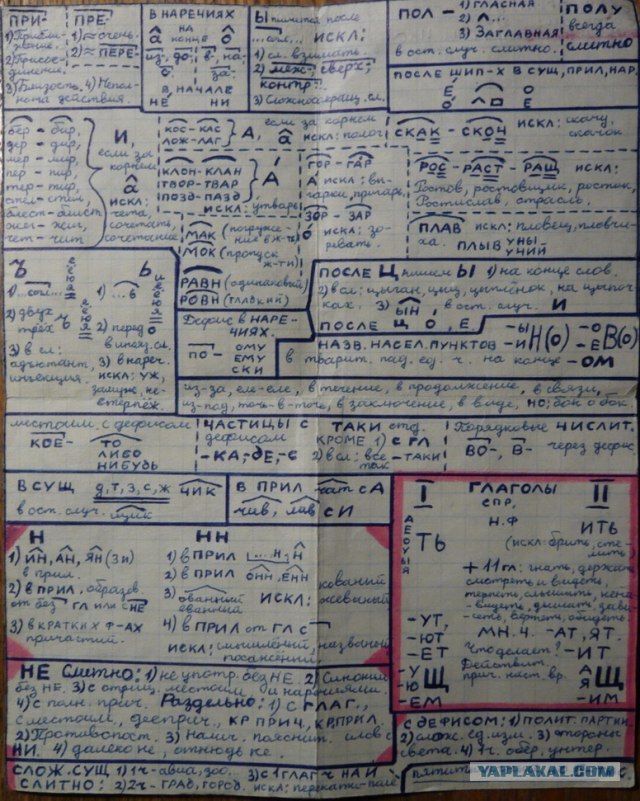 ПРИ-
1) Прибли-
жение.
2) Присое-
динение.
3) Близость. 4) Непол-
нота действия.
ПРЕ-
1) ≈ очень.
2) ≈ ПЕРЕ-
В НАРЕЧИЯХ
на
а конце о
из-, до-, в-, на-,
с- за-
в НАЧАЛЕ
НЕ НИ
Ы пишется после
...согл., ИСКЛ:
1) сл. взимать.
2) меж-, сверх-,
контр-.
3) Сложносокращ. сл.
ПОЛ - 1) ГЛАСНАЯ
2) Л...
3) ЗАГЛАВНАЯ
в ост. случ. слитно.
ПОЛУ
всегда
слитно
ПОСЛЕ ШИП-Х В СУЩ, ПРИЛ, НАР.
Е О
бер - бир,
дер - дир,
мер - мир,
пер - пир,
тер - тир,
стел - стил,
блест - блист,
жег - жиг,
чет - чит
И,
если за
корнем
а
искл:
чета,
сочетать,
сочетание
КОС - КАС
ЛОЖ - ЛАГ
А, если за корнем
а искл: полог
КЛОН - КЛАН
ТВОР - ТВАР
ПОЗД - ПАЗД
А
искл: утварь
МАК (погруже-
ние в ж-ть)
МОК (пропуск
ж-ти)
РАВН (одинаковый)
РОВН (гладкий)
ГОР - ГАР
А искл: вы-
гарки, пригарь.
ЗОР - ЗАР
о искл: зо-
ревать.
СКАК - СКОЧ искл: скачу,
скачок
РОС - РАСТ - РАЩ искл:
Ростов, ростовщик, росток,
Ростислав, отрасль.
ПЛАВ искл: пловец, пловчи-
ха. ПЛЫВУНЫ
Ъ
1) ...согл...
2) двух-
трёх-
3) в сл:
адъютант,
инъекция.
Ь
1) ...в
2) перед о
в инояз. сл.
3) в нареч.
искл: уж,
замуж, не-
втерпёж.
ПОСЛЕ Ц пишем Ы 1) на конце слов.
2) в сл: цыган, цыц, цыплёнок, на цыпоч-
ках. 3) ЫН, в ост. случ. И
ПОСЛЕ Ц О, Е,
Дефис в НАРЕ-
ЧИЯХ.
ПО- ОМУ
ЕМУ
СКИ
НАЗВ. НАСЕЛ. ПУНКТОВ -ЫН(О) -ОВ(О)
-И -Е
в творит. пад. ед. ч. на конце -ОМ
из-за, еле-еле, в течение, в продолжение, в связи,
из-под, точь-в-точь, в заключение, в виде, НО: бок о бок.
местоим. с дефисом
КОЕ- -ТО
ЛИБО
НИБУДЬ
ЧАСТИЦЫ С
дефисом
-КА, -ДЕ, -С
ТАКИ отд.
КРОМЕ 1) с ГЛ
2) в сл: всё-таки
так
Порядковые ЧИСЛИТ.
ВО-, В- через дефис
В СУЩ д, т, з, с, ж ЧИК
в ост. случ. щик
В ПРИЛ чат с А
чив, лив с И
Н
1) ИН, АН, ЯН (3и)
в прил.
2) в ПРИЛ, образов.
от без ГЛ или с НЕ
3) в КРАТКИХ Ф-АХ
причастий.
НН
1) в ПРИЛ ...н, н
2) в ПРИЛ ОНН, ЕНН
3) ованный
еванный ИСКЛ: кованый
жёваный
4) в ПРИЛ от ГЛ с
искл: смышлёный, названый
посажёный.
I ГЛАГОЛЫ II
СПР.
А Е О У Ы Я
ТЬ
Н.Ф. ИТЬ
(искл: брить, сте-
лить
+ 11 гл: гнать, держать,
смотреть и видеть,
терпеть, слышать, нена-
видеть, дышать, зави-
сеть, вертеть, обидеть.
-УТ, МН.Ч. -АТ, ЯТ.
-ЮТ
-ЕТ Что делает? -ИТ
-УЩ Действит. АЩ
-Ю прич. наст. вр. Я
-ЕМ -ИМ
НЕ Слитно: 1) не употр. без НЕ. 2) Синоним
без НЕ. 3) с отриц. местоим. и наречиями.
4) с полн. прич. Раздельно: 1) с ГЛАГ.,
с местоим., дееприч., КР ПРИЧ, КР.ПРИЛ.
2) Противопост. 3) Налич. пояснит. слов с
НИ. 4) далеко не, отнюдь не.
С ДЕФИСОМ: 1) ПОЛИТ. ПАРТИИ
2) слож. ед. изм. 3) стороны
света. 4) 1 ч. обер, унтер.
СЛОЖ. СУЩ 1) 1 ч - авиа, зоо. 3) с 1 ГЛАГ Ч НА И
СЛИТНО: 2) 2 ч - ГРАД, ГОРОД. искл: перекати-поле
YAPLAKAL.COM